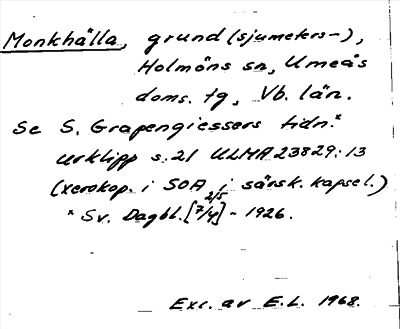 Monkhälla, grund (sjumeters-),
Holmöns sn, Umeås
doms. tg, Vb. län.
Se S. Grapengiessers tidn.*
urklipp s. 21 ULMA 23829:13
(xerokop. i SOA, i särsk. kapsel.)
* Sv. Dagbl. [7/4] 2/5 - 1926.
Exc. av E.L. 1968.